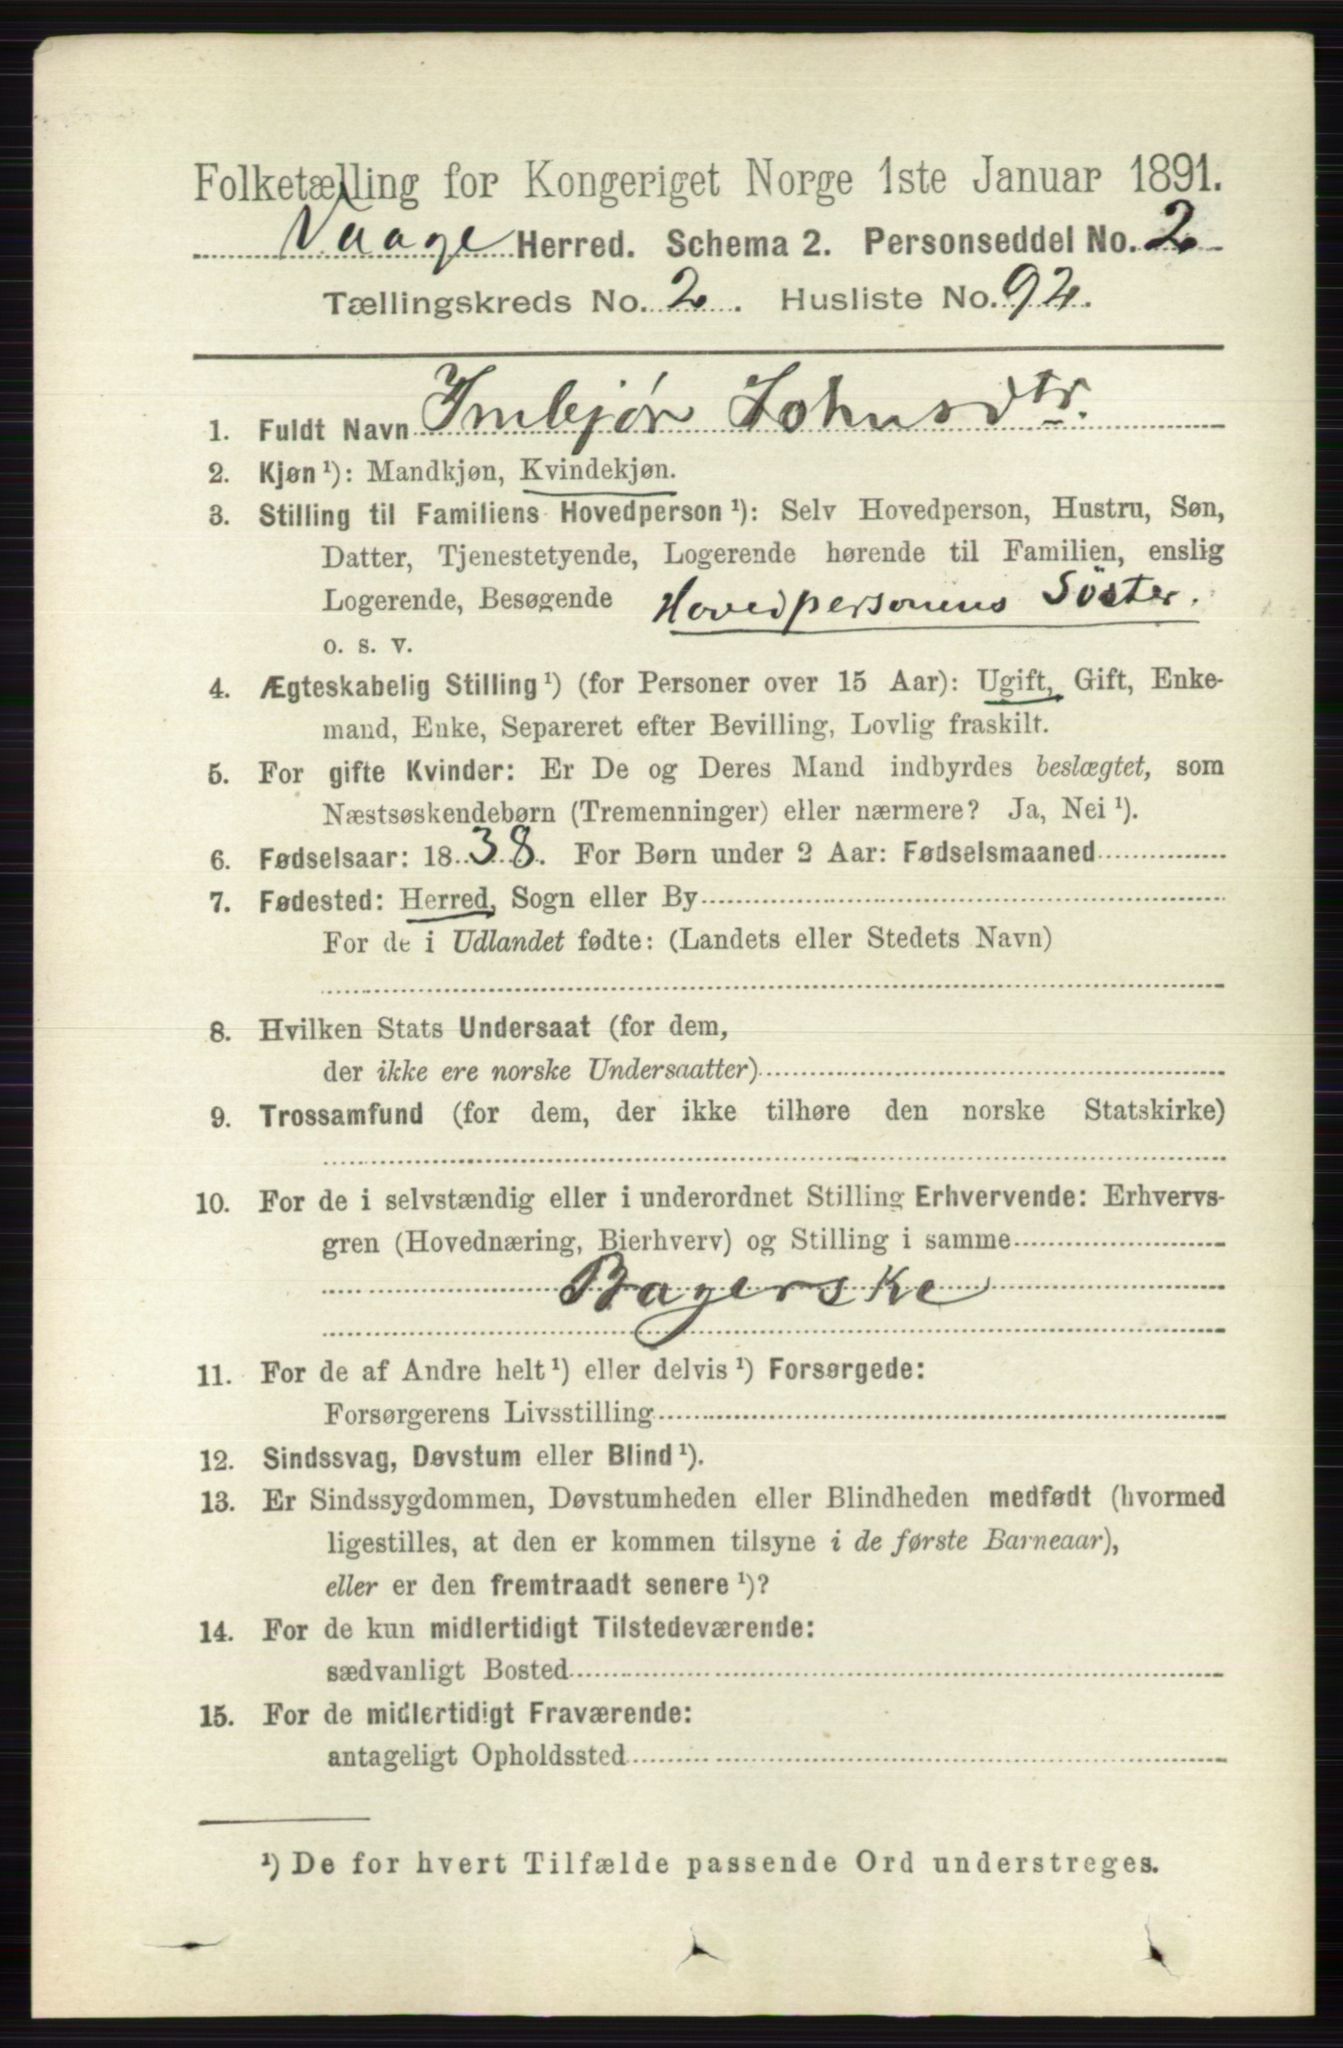 Folketælling for Kongeriget Norge 1ste Januar 1891.
Vaage Herred. Schema 2. Personseddel No. 2
Tællingskreds No. 2. Husliste No. 92.
1. Fuldt Navn Imbjør Johnsdtr.
2. Kjøn ¹): Mandkjøn, Kvindekjøn.
3. Stilling til Familiens Hovedperson ¹): Selv Hovedperson, Hustru, Søn,
Datter, Tjenestetyende, Logerende hørende til Familien, enslig
Logerende, Besøgende Hovedpersonens Söster.
o. s. v.
4. Ægteskabelig Stilling ¹) (for Personer over 15 Aar): Ugift, Gift, Enke-
mand, Enke, Separeret efter Bevilling, Lovlig fraskilt.
5. For gifte Kvinder: Er De og Deres Mand indbyrdes beslægtet, som
Næstsøskendebørn (Tremenninger) eller nærmere? Ja, Nei ¹).
6. Fødselsaar: 1838. For Børn under 2 Aar: Fødselsmaaned
7. Fødested: Herred, Sogn eller By
For de i Udlandet fødte: (Landets eller Stedets Navn)
8. Hvilken Stats Undersaat (for dem,
der ikke ere norske Undersaatter)
9. Trossamfund (for dem, der ikke tilhøre den norske Statskirke)
10. For de i selvstændig eller i underordnet Stilling Erhvervende: Erhvervs-
gren (Hovednæring, Bierhverv) og Stilling i samme
Bagerske
11. For de af Andre helt ¹) eller delvis ¹) Forsørgede:
Forsørgerens Livsstilling
12. Sindssvag, Døvstum eller Blind ¹).
13. Er Sindssygdommen, Døvstumheden eller Blindheden medfødt (hvormed
ligestilles, at den er kommen tilsyne i de første Barneaar),
eller er den fremtraadt senere ¹)?
14. For de kun midlertidigt Tilstedeværende:
sædvanligt Bosted
15. For de midlertidigt Fraværende:
antageligt Opholdssted
¹) De for hvert Tilfælde passende Ord understreges.